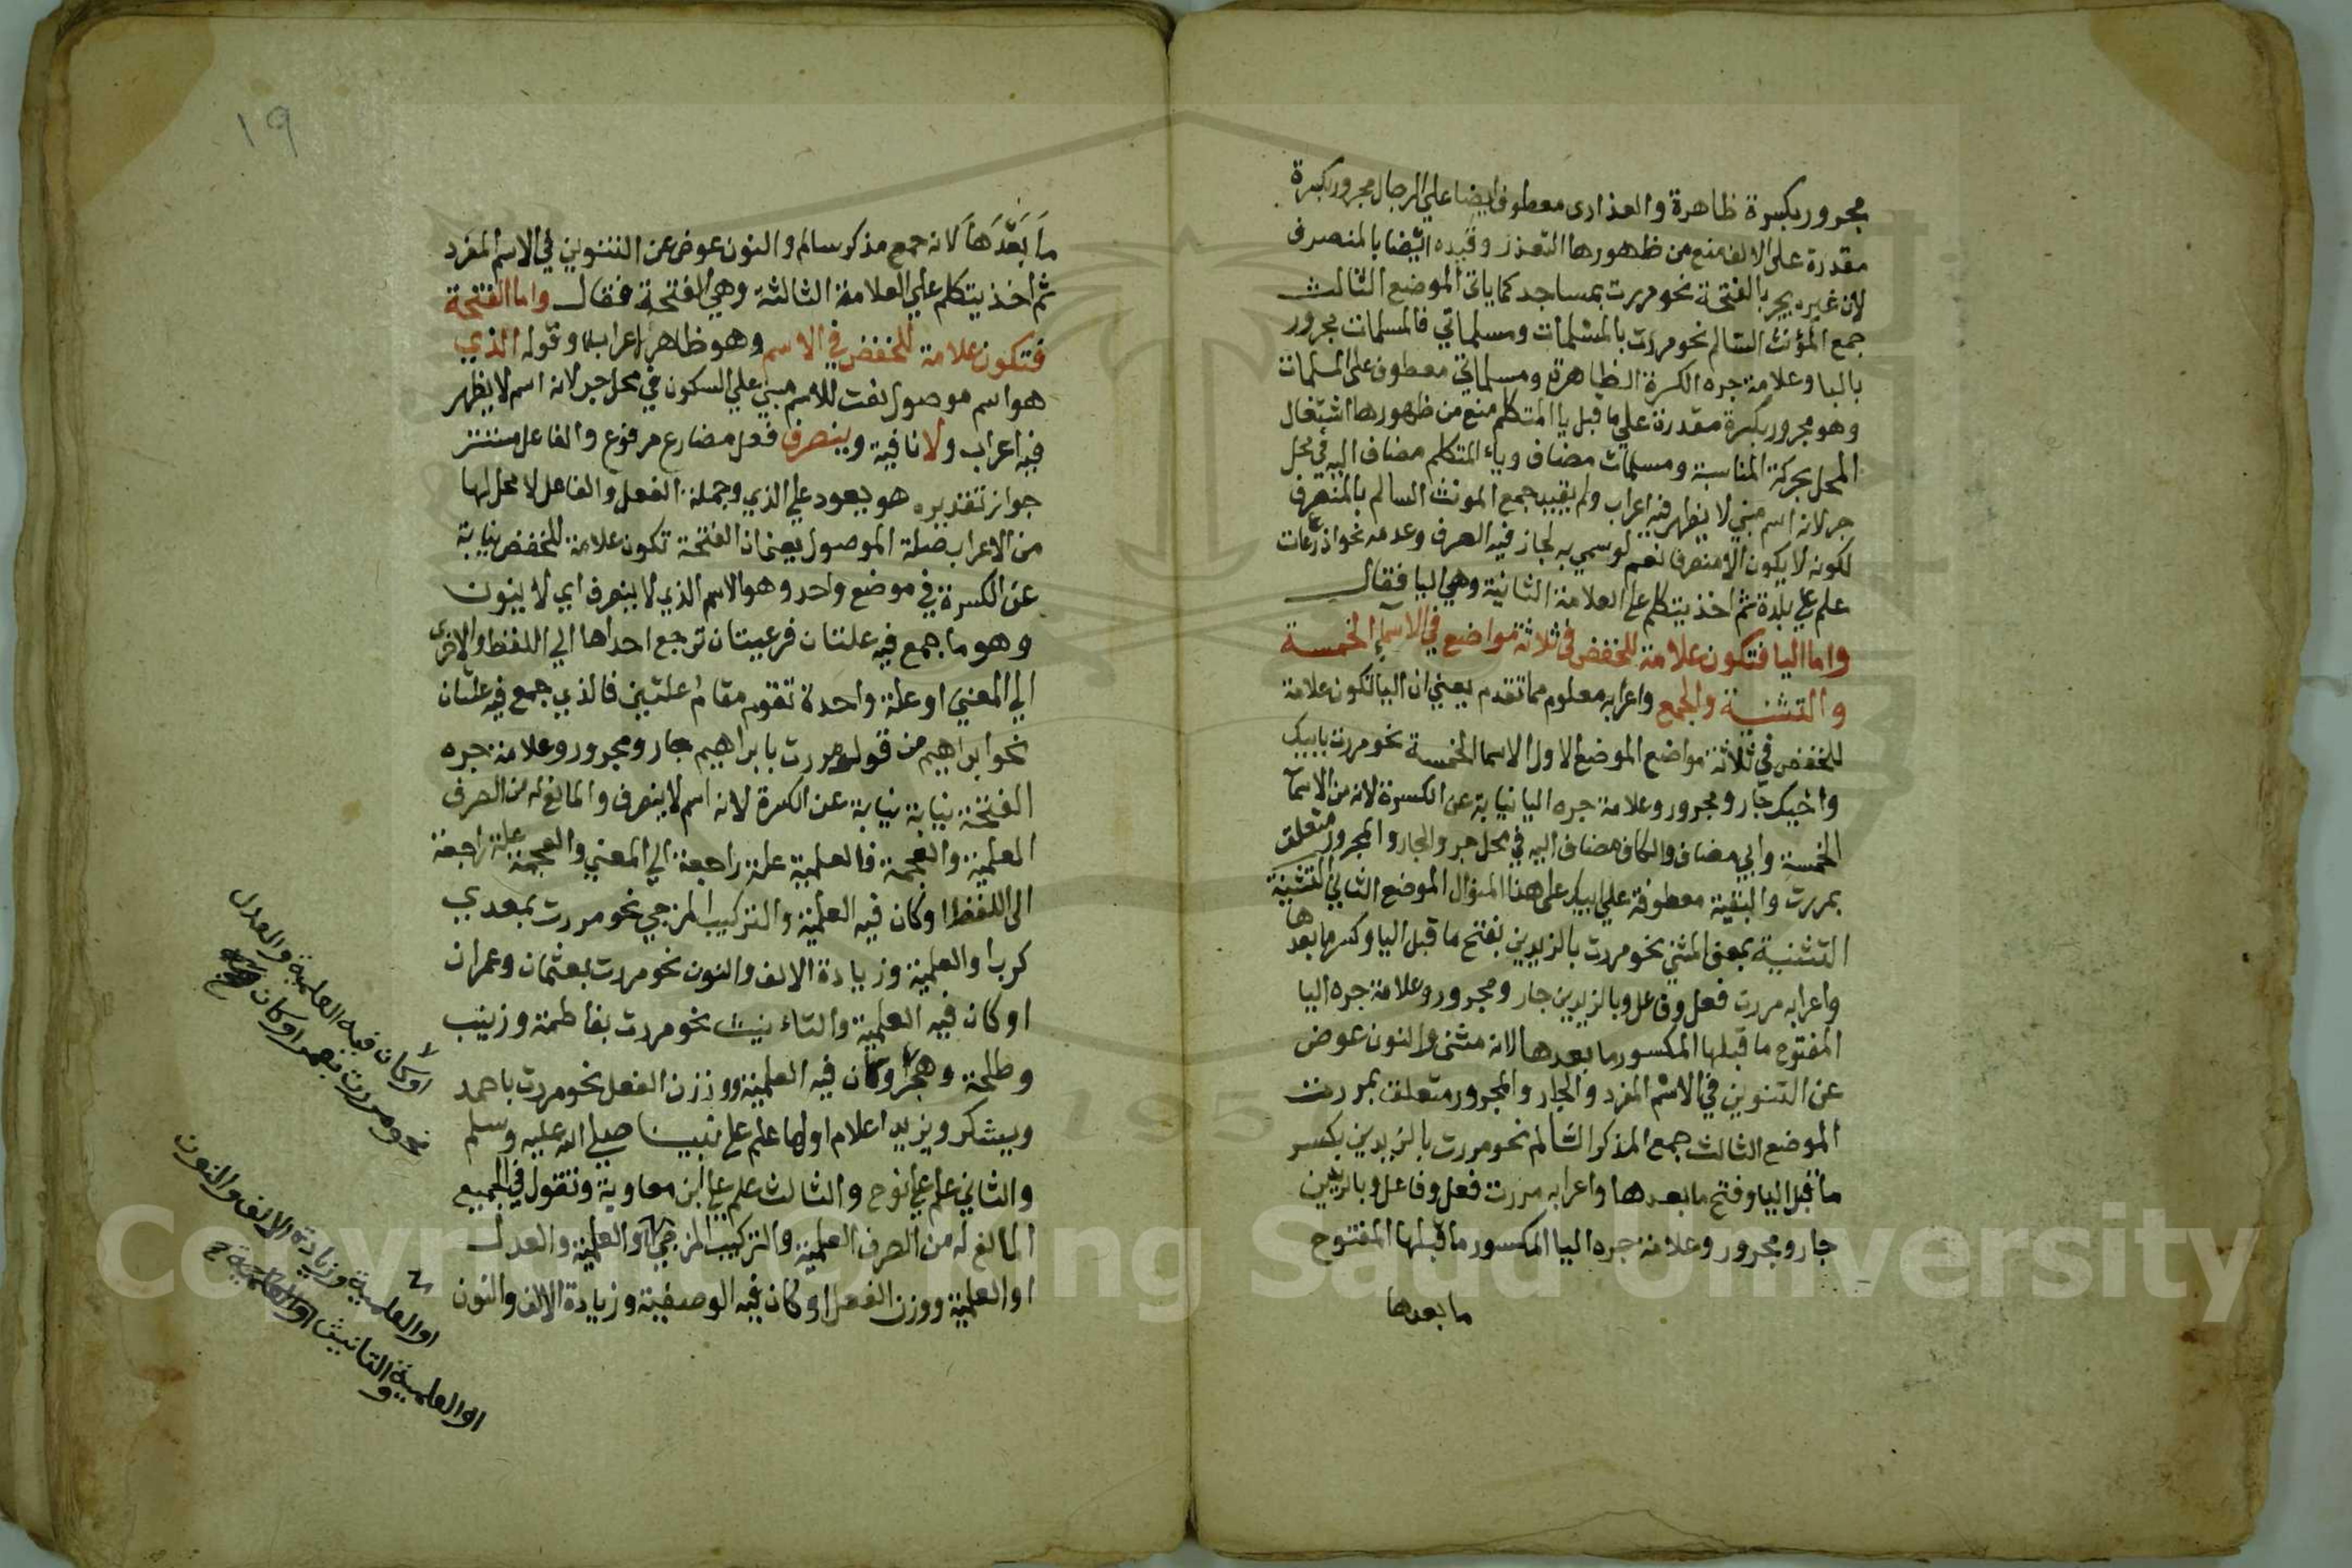 مجرور بكسرة ظاهرة والعذارى معطوف ايضا علي الرجال مجرور بكسرة
مقدرة على الالف منع من ظهورها التعذر وقيده ايضا بالمنصرف
لان غيره يجر بالفتحة نحو مررت بمساجد كما ياتي الموضع الثالث
جمع المؤنث السالم نحو مررت بالمسلمات ومسلماتي فالمسلمات مجرور
بالبا وعلامة جره الكسرة الظاهرة ومسلماتي معطوف على المسلمات
وهو مجرور بكسرة مقدرة علي ما قبل يا المتكلم منع من ظهورها اشتغال
المحل بحركة المناسبة ومسلمات مضاف وياء المتكلم مضاف اليه في محل
جر لانه اسم مبني لا يظهر فيه اعراب ولم يقيد جمع المونث السالم بالمنصرف
لكونه لا يكون الا منصرفا نعم لو سمي به لجاز فيه الصرف وعدمه نحو اذرعات
علم علي بلدة ثم اخذ يتكلم على العلامة الثانية وهي اليا فقال
واما اليا فتكون علامة للخفض في ثلاثة مواضع في الاسماء الخمسة
والتثنية والجمع واعرابه معلوم مما تقدم يعني ان اليا تكون علامة
للخفض في ثلاثة مواضع الموضع الاول الاسما الخمسة نحو مررت بابيك
واخيك جار ومجرور وعلامة جره اليا نيابة عن الكسرة لانه من الاسما
الخمسة وابي مضاف والكاف مضاف اليه في محل جر والجار والمجرور متعلق
بمررت والبقية معطوفة علي ابيك على هذا المنوال الموضع الثاني التثنية
التثنية بمعنى المثني نحو مررت بالزيدين بفتح ما قبل اليا وكسر ما بعدها
واعرابه مررت فعل وفاعل وبالزيدين جار ومجرور وعلامة جره اليا
المفتوح ما قبلها المكسور ما بعدها لانه مثنى والنون عوض
عن التنوين في الاسم المفرد والجار والمجرور متعلق بمررت
الموضع الثالث جمع المذكر السالم نحو مررت بالزيدين بكسر
ما قبل اليا وفتح ما بعدها واعرابه مررت فعل وفاعل وبالزيدين
جار ومجرور وعلامة جره اليا المكسور ما قبلها المفتوح
ما بعدها
١٩
ما بعدها لانه جمع مذكر سالم والنون عوض عن التنوين في الاسم المفرد
ثم اخذ يتكلم علي العلامة الثالثة وهي الفتحة فقال واما الفتحة
فتكون علامة للخفض في الاسم وهو ظاهر اعرابه وقوله الذي
هو اسم موصول نعت للاسم مبني علي السكون في محل جر لانه اسم لا يظهر
فيه اعراب ولا نافية وينصرف فعل مضارع مرفوع والفاعل مستتر
جواز تقديره هو يعود علي الذي وجملة الفعل والفاعل لا محل لها
من الاعراب صلة الموصول يعني ان الفتحة تكون علامة للخفض نيابة
عن الكسرة في موضع واحد وهو الاسم الذي لا ينصرف اي لا ينون
وهو ما جمع فيه علتان فرعيتان ترجع احداها الي اللفظ والاخرى
الي المعني او علة واحدة تقوم مقام علتين فالذي جمع فيه علتان
نحو ابراهيم من قولك مررت بابراهيم جار ومجرور وعلامة جره
الفتحة نيابة نيابة عن الكسرة لانه اسم لا ينصرف والمانع له من الصرف
العلمية والعجمة فالعلمية علة راجعة الي المعني والعجمة علة راجعة
الى اللفظ او كان فيه العلمية والتركيب المزجي نحو مررت بمعدي
كرب او العلمية وزيادة الالف والنون نحو مررت بعثمان وعمران
او كان فيه العلمية والتاءنيث نحو مررت بفاطمة وزينب
وطلحة وهجر او كان فيه العلمية ووزن الفعل نحو مررت باحمد
ويشكر ويزيد اعلام اولها علم علي نبينا صلي الله عليه وسلم
والثاني علم علي نوح والثالث علم علي ابن معاوية وتقول في الجميع
المانع له من الصرف العلمية والتركيب المزجي او العلمية والعدل
او العلمية ووزن الفعل او كان فيه الوصفية وزيادة الالف والنون
او كان فيه العلمية والعدل
نحو مررت بعمر او كان
او العلمية وزيادة الالف والنون
او العلمية والتانيث او العلمية
Copyright © King Saud University
195